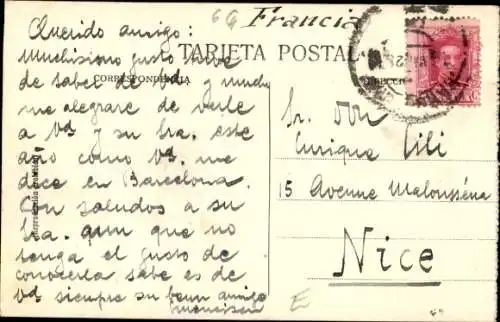 66 Francia
TARJETA POSTAL
CORRESPONDENCIA
Querido amigo:
Muchisimo gusto tuve
de saber de Vd y mucho
me alegrare de verle
a Vd y su Sra. este
año como Vd. me
dice en Barcelona.
Con saludos a su
Sra. aun que no
tenga el gusto de
conocerla sabe es de
Vd siempre su buen amigo
Sr. Don
Enrique Tili
15 Avenue Maloussena
Nice
E